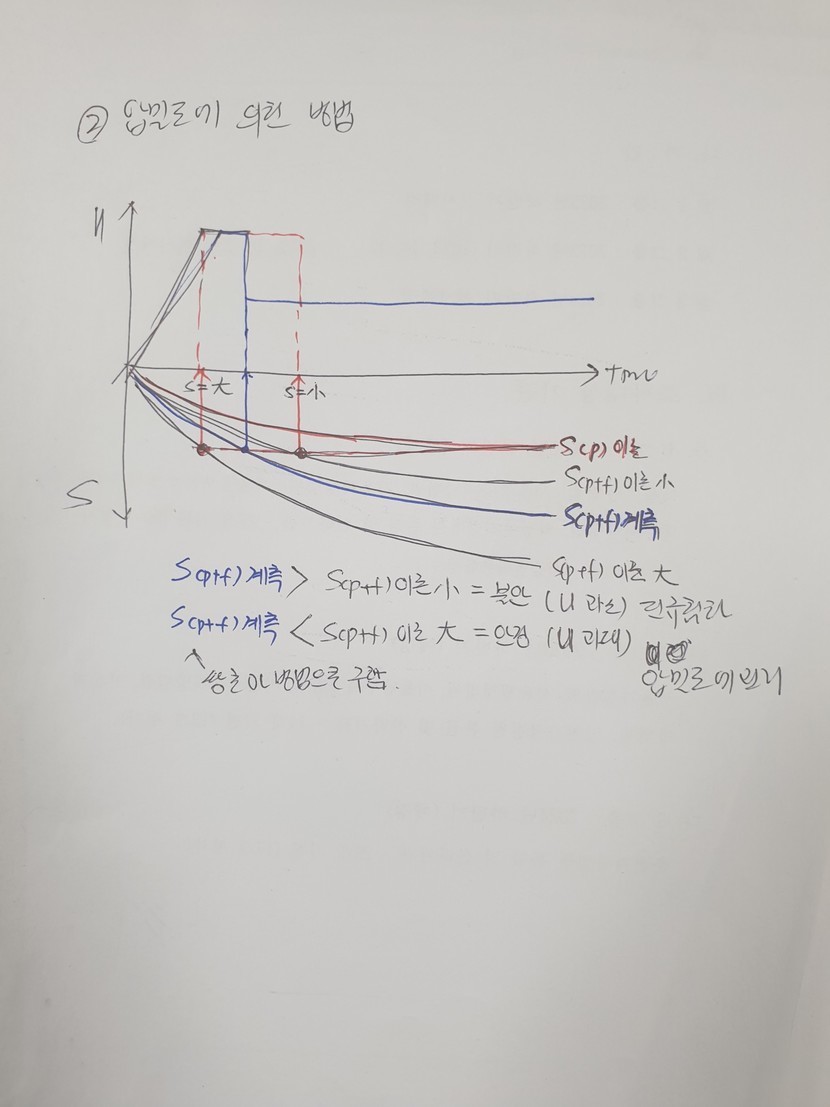 ② 압밀도에 의한 방법
H
time
S=大
S=小
S
S(p) 이론
S(p+f) 이론 小
S(p+f) 계측
S(p+f) 이론 大
S(p+f) 계측 > S(p+f) 이론 小 = 불안 (U 과소)
S(p+f) 계측 < S(p+f) 이론 大 = 안정 (U 과대)
쌍곡선 방법으로 구함.
압밀도에